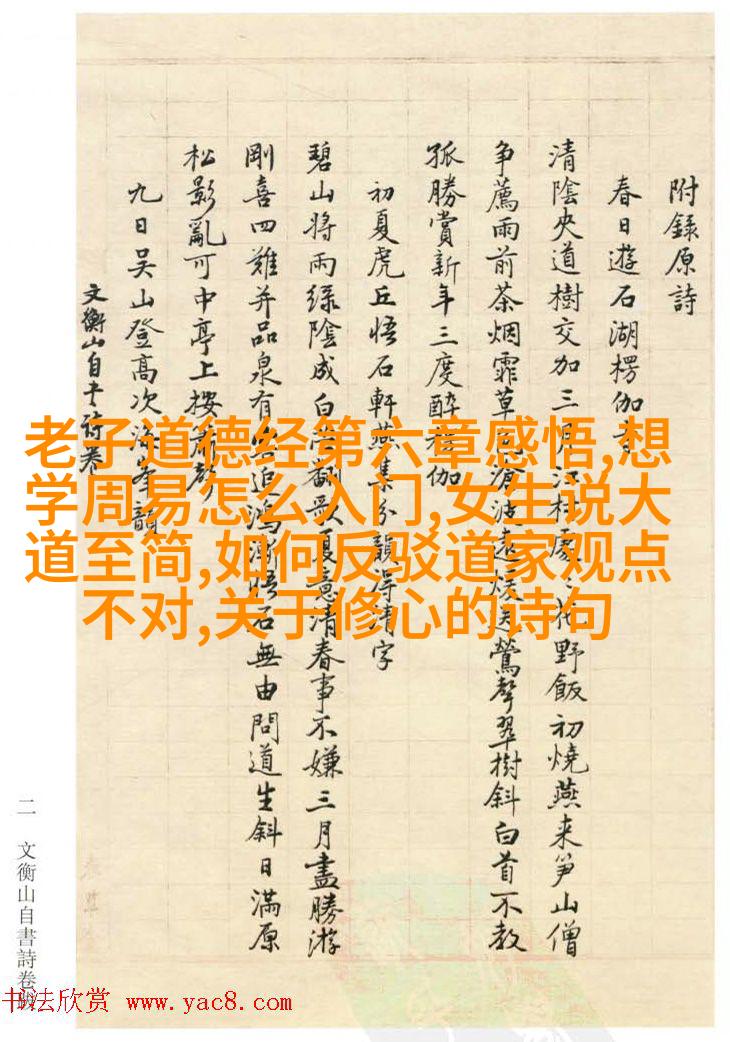 附錄原詩
春日遊石湖楞伽
清陰夾道樹交加三月江村處花野飯初燒燕来笋山僧
争薦雨前茶烟霏草滄波遠暖送鶯聲翠樹斜白首不教
孤勝賞新年三度醉伽
初夏虎丘悟石軒燕集分韻得清字
碧山將雨綠陰成白歌夏意清春事不嫌三月盡勝游
剛喜四難并品泉有追鴻漸悟石無由問道生斜日滿原
松影亂可中亭上按聲
九日吳山登高次峯韻
文衡山自書詩卷
二 文衡山自書詩卷跋
老子道德经第六章感悟,想
学周易怎么入门,女生说大
道至简,如何反驳道家观点
不对,关于修心的诗句
书法欣赏 www.yac8.com